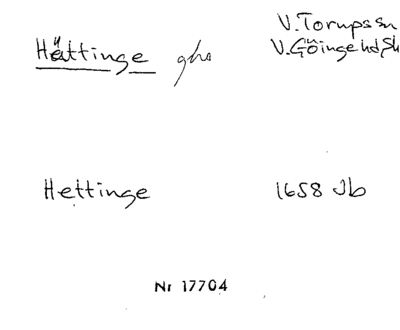 V. Torups sn
Hättinge gho V. Göinge hd, Sk
Hettinge 1658 Jb
Nr 17704